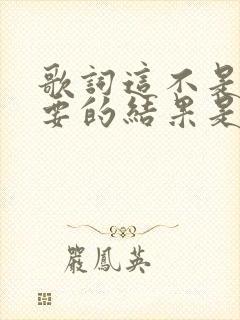 歌詞這不是
要的結果是
嚴鳳英